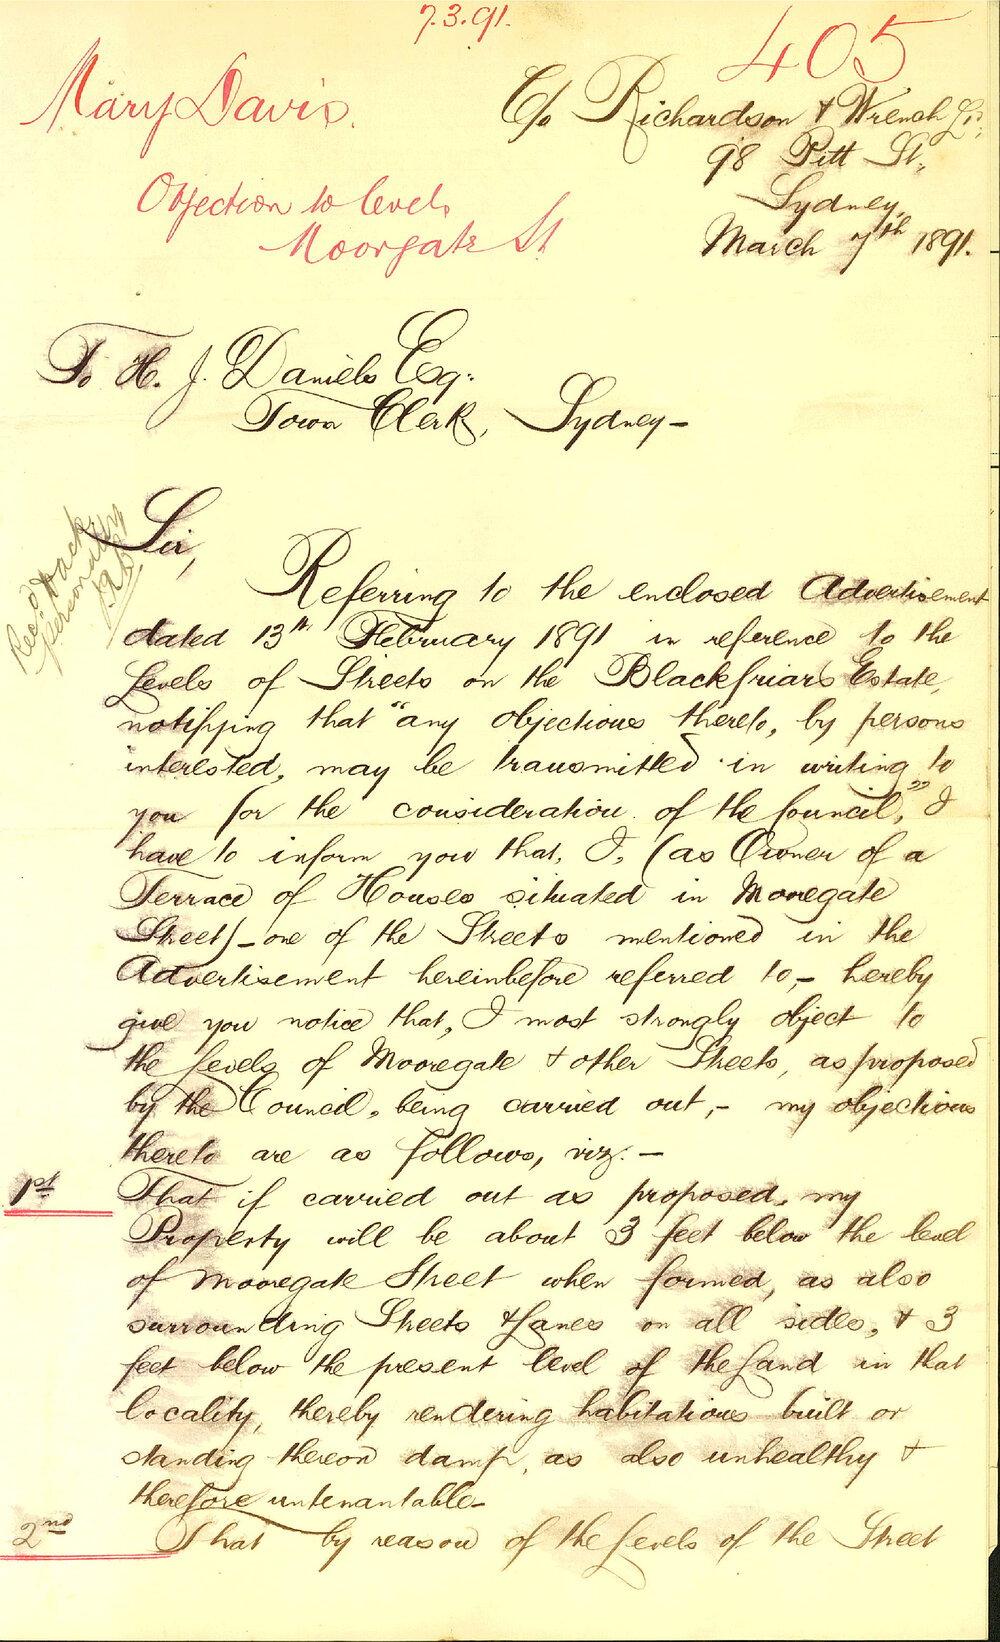 7.3.91.
405
Mary Davis.
Objection to levels
Moorgate St
C/o Richardson & Wrench Ld;
98 Pitt St,
Sydney,
March 7th 1891.
To H. J. Daniels Esq:
Town Clerk, Sydney –
Rec.d back
personally
Sir,
Referring to the enclosed Advertisement
dated 13th February 1891 in reference to the
Levels of Streets on the Blackfriars Estate,
notifying that "any objections thereto, by persons
interested, may be transmitted in writing to
you for the consideration of the Council," I
have to inform you that, I, (as Owner of a
Terrace of Houses situated in Mooregate
Street) – one of the Streets mentioned in the
Advertisement hereinbefore referred to, – hereby
give you notice that, I most strongly object to
the Levels of Mooregate & other Streets, as proposed
by the Council, being carried out, – my objections
thereto are as follows, viz. –
1st That if carried out as proposed, my
Property will be about 3 feet below the level
of Mooregate Street when formed, as also
surrounding Streets & Lanes on all sides, & 3
feet below the present level of the Land in that
locality, thereby rendering habitations built or
standing thereon damp, as also unhealthy &
therefore untenantable –
2nd That by reason of the Levels of the Street